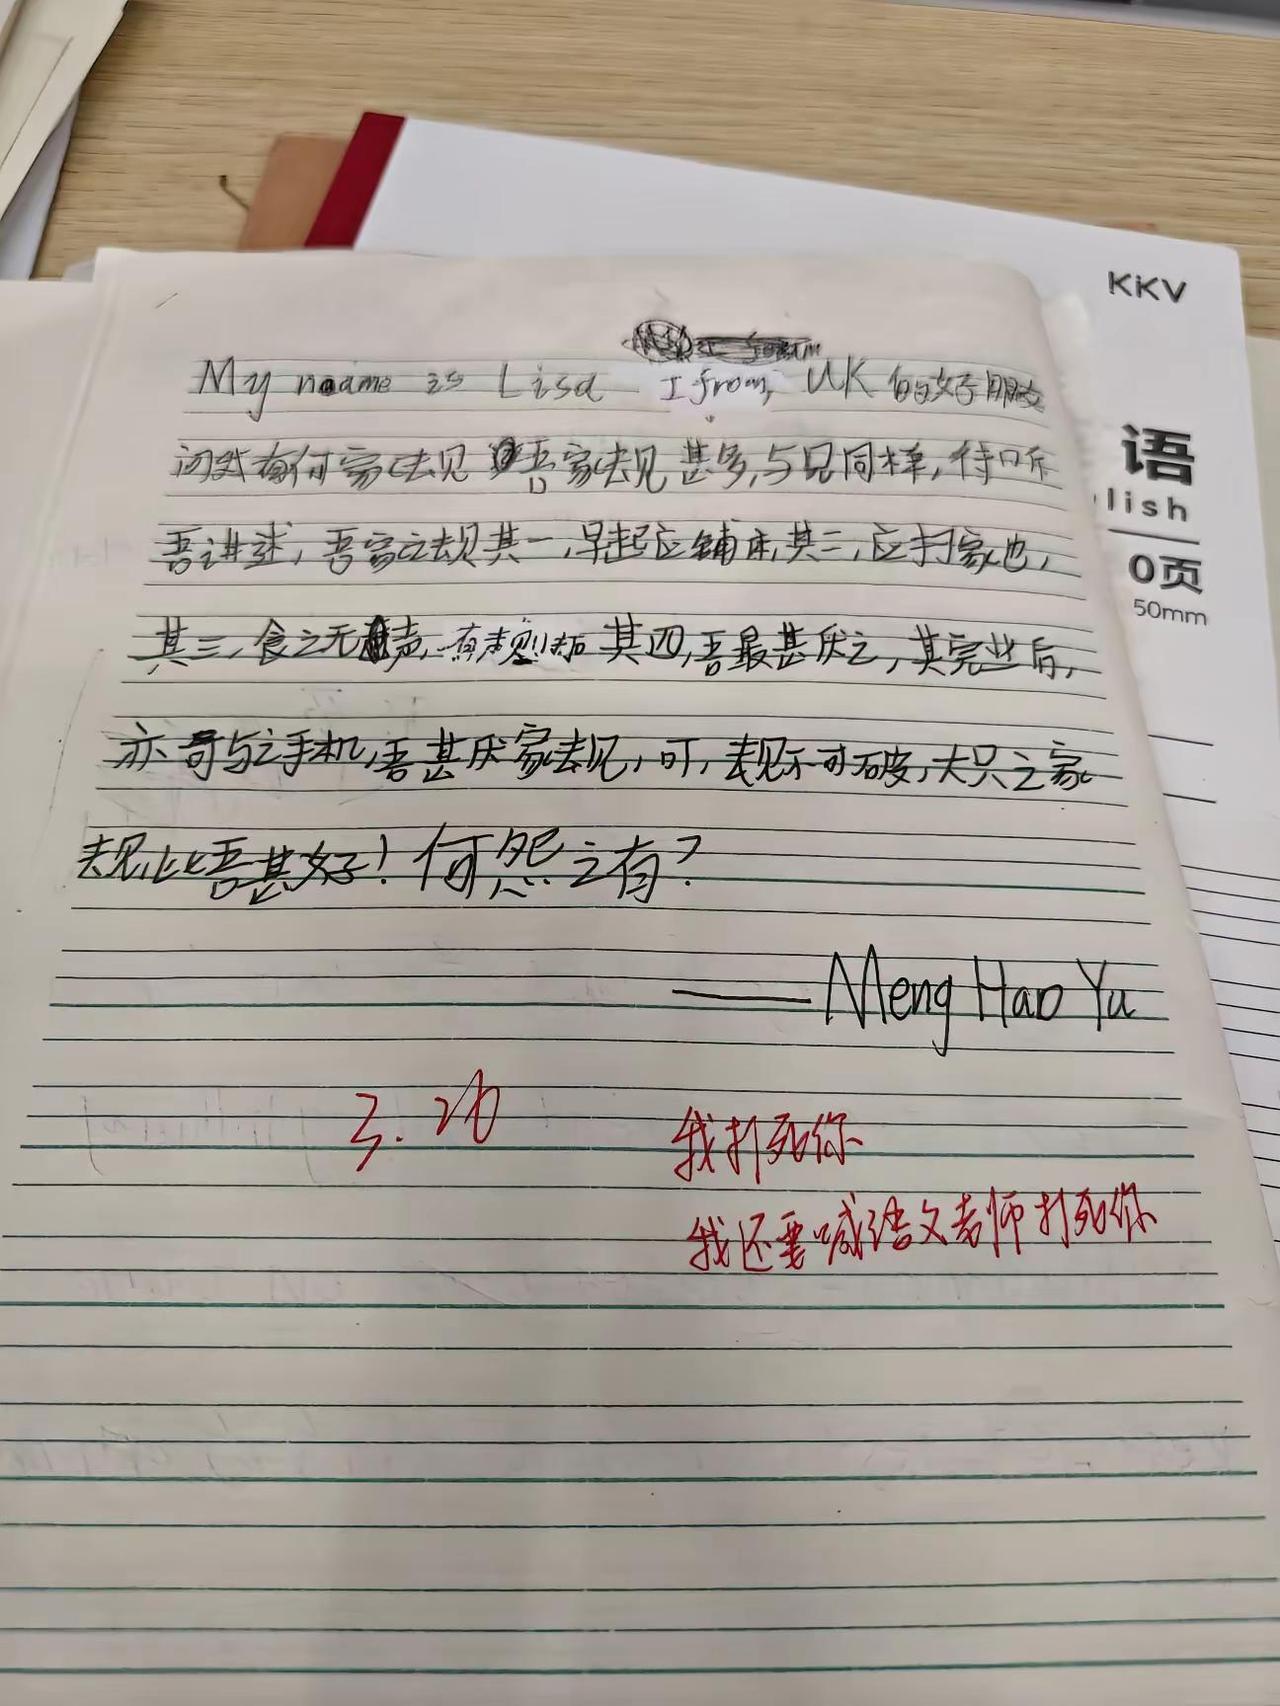 KKV
My name is Lisa I from UK的好朋友
语
问我有何家规 吾家规甚多,与兄同样,待听
lish
吾讲述,吾家之规其一,早起应铺床,其二,应扫家也,
0页
50mm
其三,食之无声, 其四,吾最甚厌之,其完毕后,
亦哥与之手机,吾甚厌家规,可,规不可破,大只之家
规,比吾甚好!何怨之有?
——Meng Hao Yu
3.26
我打死你
我还要喊语文老师打死你